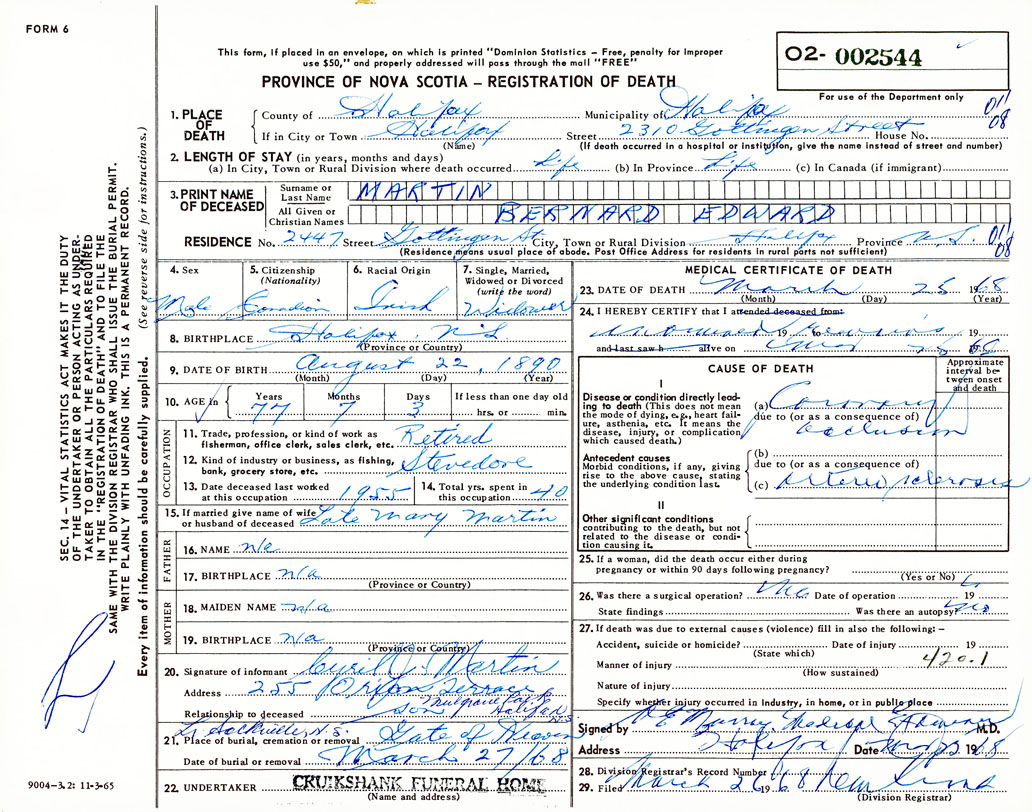 FORM 6
This form, if placed in an envelope, on which is printed "Dominion Statistics – Free, penalty for improper
use $50," and properly addressed will pass through the mail "FREE"
O2- 002544
PROVINCE OF NOVA SCOTIA – REGISTRATION OF DEATH
For use of the Department only
1. PLACE OF DEATH
County of Halifax Municipality of Halifax 011
If in City or Town Halifax Street 2310 Gottingen Street House No. 08
(Name) (If death occurred in a hospital or institution, give the name instead of street and number)
2. LENGTH OF STAY (in years, months and days)
(a) In City, Town or Rural Division where death occurred Life (b) In Province Life (c) In Canada (if immigrant)
3. PRINT NAME OF DECEASED
Surname or Last Name MARTIN
All Given or Christian Names BERNARD EDWARD
RESIDENCE No. 2447 Street Gottingen St. City, Town or Rural Division Halifax Province N.S. 011
(Residence means usual place of abode. Post Office Address for residents in rural parts not sufficient) 08
4. Sex Male
5. Citizenship (Nationality) Canadian
6. Racial Origin Irish
7. Single, Married, Widowed or Divorced (write the word) Widower
8. BIRTHPLACE Halifax, N.S.
(Province or Country)
9. DATE OF BIRTH August 22, 1890
(Month) (Day) (Year)
10. AGE in Years Months Days If less than one day old
77 7 3 hrs. or min.
OCCUPATION
11. Trade, profession, or kind of work as
fisherman, office clerk, sales clerk, etc. Retired
12. Kind of industry or business, as fishing,
bank, grocery store, etc. Stevedore
13. Date deceased last worked
at this occupation 1955
14. Total yrs. spent in
this occupation 40
15. If married give name of wife
or husband of deceased Late Mary Martin
FATHER
16. NAME n/a
17. BIRTHPLACE n/a
(Province or Country)
MOTHER
18. MAIDEN NAME n/a
19. BIRTHPLACE n/a
(Province or Country)
20. Signature of informant Cyril J. Martin
Address 255 Terrace
Mulgrave Park
Halifax N.S.
Relationship to deceased son
Sackville, N.S.
21. Place of burial, cremation or removal Gate of Heaven
Date of burial or removal March 27/68
22. UNDERTAKER CRUIKSHANK FUNERAL HOME
(Name and address)
MEDICAL CERTIFICATE OF DEATH
23. DATE OF DEATH March 25 1968
(Month) (Day) (Year)
24. I HEREBY CERTIFY that I attended deceased from:
19 to 19
and last saw h alive on 19
CAUSE OF DEATH
Approximate interval between onset and death
I
Disease or condition directly leading to death (This does not mean
the mode of dying, e.g., heart failure, asthenia, etc. It means the
disease, injury, or complication
which caused death.)
(a) Coronary
due to (or as a consequence of)
occlusion
Antecedent causes
Morbid conditions, if any, giving
rise to the above cause, stating
the underlying condition last.
(b)
due to (or as a consequence of)
(c) Arteriosclerosis
II
Other significant conditions
contributing to the death, but not
related to the disease or condition causing it.
25. If a woman, did the death occur either during
pregnancy or within 90 days following pregnancy?
(Yes or No)
26. Was there a surgical operation? No Date of operation 19
State findings Was there an autopsy? No
27. If death was due to external causes (violence) fill in also the following: –
Accident, suicide or homicide? Date of injury 19
(State which) 420.1
Manner of injury
(How sustained)
Nature of injury
Specify whether injury occurred in Industry, in home, or in public place
Signed by Murray Medical Examiner M.D.
Address Halifax Date 1968
28. Division Registrar's Record Number
29. Filed March 26 1968
(Division Registrar)
SEC. 14 – VITAL STATISTICS ACT MAKES IT THE DUTY
OF THE UNDERTAKER OR PERSON ACTING AS UNDER-
TAKER TO OBTAIN ALL THE PARTICULARS REQUIRED
IN THE "REGISTRATION OF DEATH" AND TO FILE THE
SAME WITH THE DIVISION REGISTRAR WHO SHALL ISSUE THE BURIAL PERMIT.
WRITE PLAINLY WITH UNFADING INK. THIS IS A PERMANENT RECORD.
Every item of information should be carefully supplied. (See reverse side for instructions.)
9004-3.2: 11-3-65